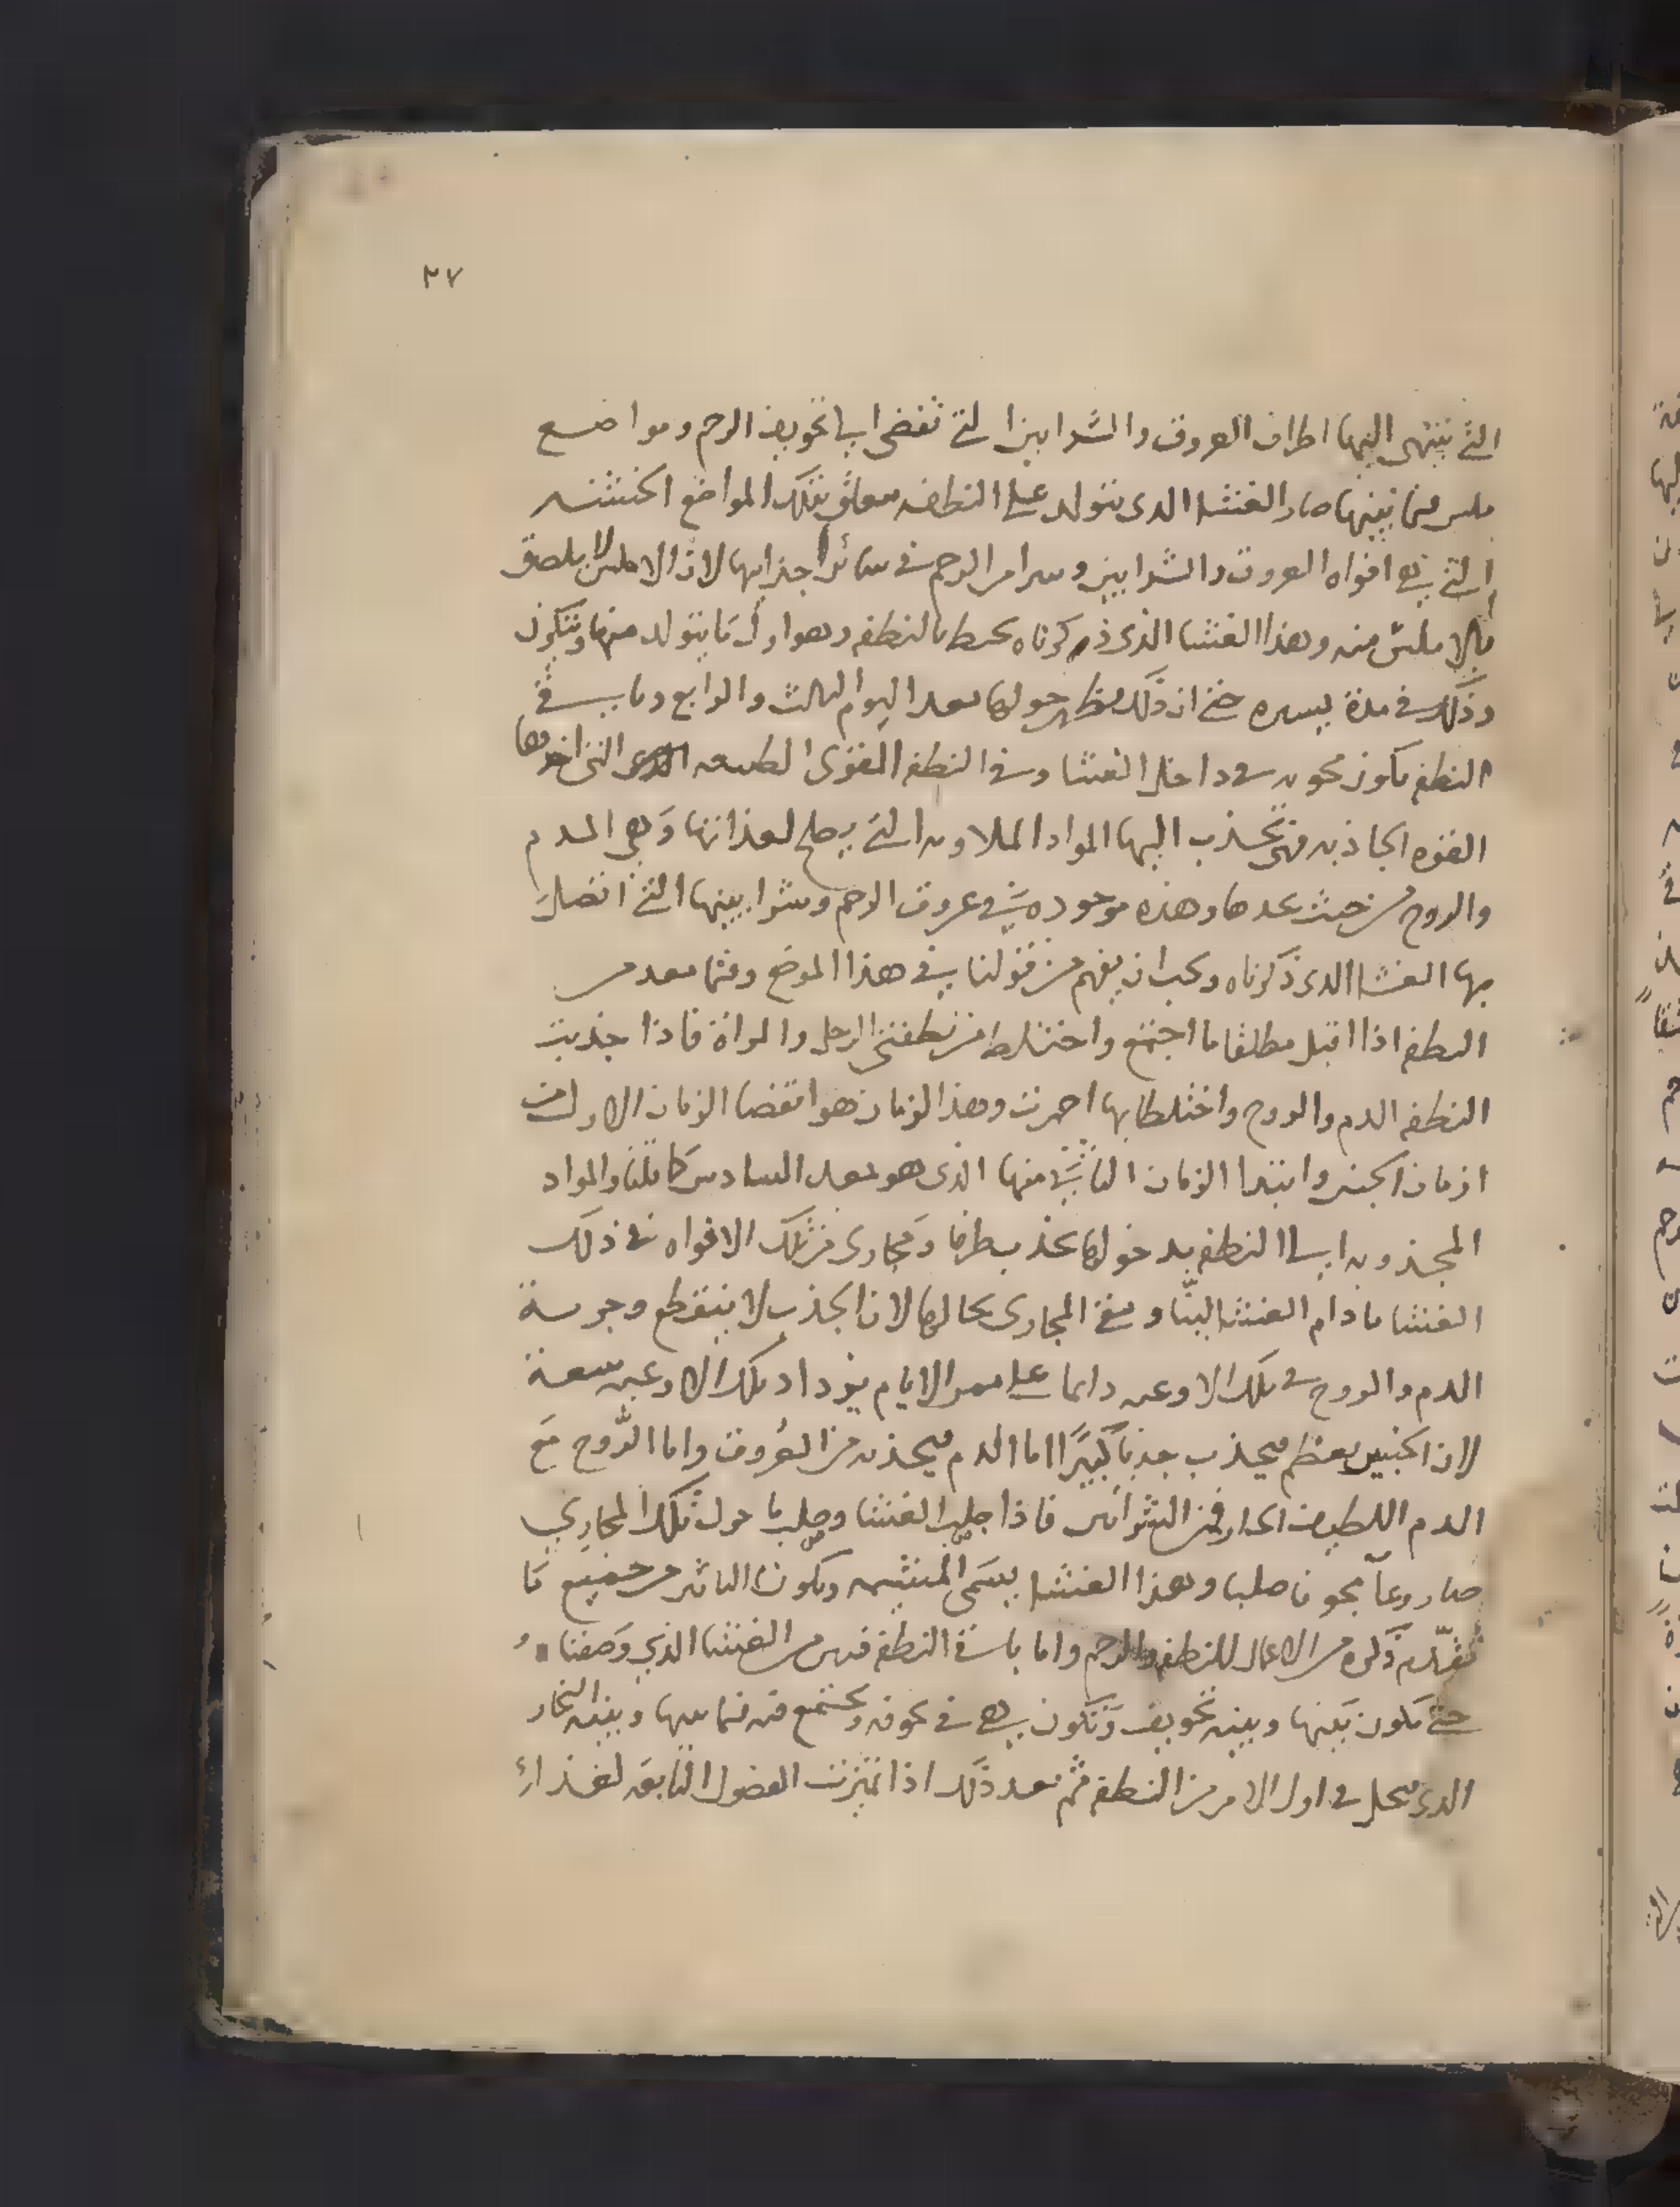 ٢٧
التي ينتهي اليها اطراف العروق والشرايين التي تفضي الي تجويف الرحم ومواضع
ملس فيما بينها صار الغشا الدى يتولد علي النطفه معلق بتلك المواضع الخشنه
التي هي افواه العروق والشرايين وسرا من الرحم في سائر اجزايها لان الاملس لا يلصق
بالاملس منه وهذا الغشا الذي ذكرناه يحيط بالنطفه وهو اول ما يتولد منها ويتكون
وذلك في مدة يسيره حتي ان ذلك يظهر حولها بعد اليوم الثالث والرابع وما يبقي
النطفه يكون محويه في داخل الغشا وفي النطفه القوى الطبيعه التي احدها
القوه الجاذبه فهي تجذب اليها المواد الملاومه التي يصلح لغذائها وهي الدم
والروح من حيث يجدها وهذه موجوده في عروق الرحم وشرايينها التي اتصل
بها الغشا الدى ذكرناه ويجب ان يفهم من قولنا في هذا الموضع وفيما بعد من
النطفه اذا قيل مطلقا ما اجتمع واختلط من نطفتي الرجل والمراة فاذا جذبت
النطفه الدم والروح واختلطا بها احمرت وهذا الزمان هو انقضا الزمان الاول من
ازمان الجنين وابتدا الزمان الثاني منها الذي هو بعد السادس كما قلنا والمواد
المجذوبه الي النطفه بدخولها تحدث طرقا ومجاري من تلك الافواه في ذلك
الغشا ما دام الغشا لينا وتبقي المجاري بحالها لان الجذب لا ينقطع وجرية
الدم والروح في تلك الاوعيه دايما علي ممر الايام يزداد تلك الاوعيه سعة
لان الجنين يعظم فيجذب جذبا كبيرا اما الدم فيجذبه من العروق واما الروح مع
الدم اللطيف الحار فمن الشرايين فاذا صلب الغشا وصلب ما حول تلك المجاري
صار وعا مجوفا صلبا وهذا الغشا يسمي المشيمه ويكون التاثير من جميع ما
تقدم ذكره من الاعمال للنطفه والرحم واما باقي النطفه فهي من الغشا الذي وصفنا
حتي يكون بينها وبينه تجويف وتكون هي في جوفه ويجتمع فيه فيما بينها وبينه البخار
الدى يتحلل في اول الامر من النطفه ثم بعد ذلك اذا تميزت الفضول التابعة لغذاء